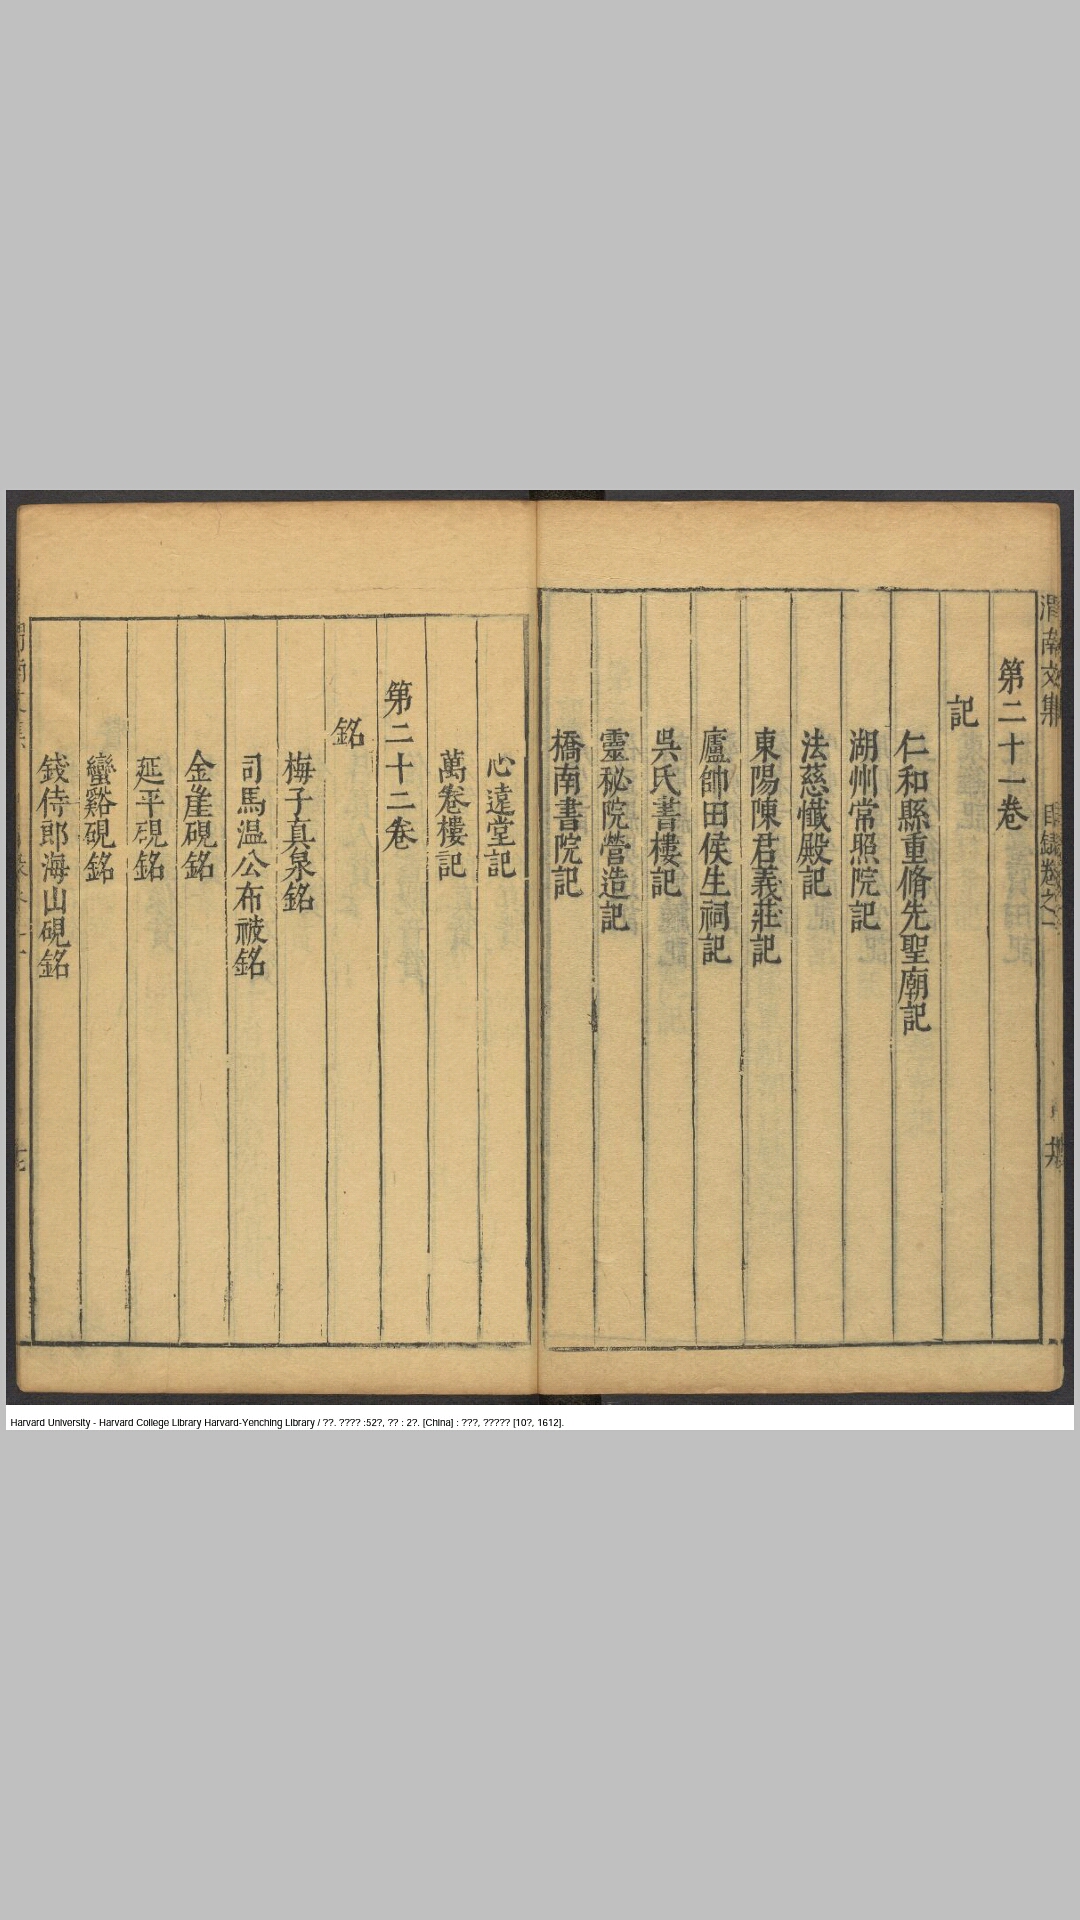 渭南文集
目錄卷之一
第二十一卷
記
仁和縣重脩先聖廟記
湖州常照院記
法慈懺殿記
東陽陳君義莊記
廬帥田侯生祠記
吳氏書樓記
靈秘院營造記
橋南書院記
心遠堂記
萬卷樓記
第二十二卷
銘
梅子真泉銘
司馬温公布被銘
金崖硯銘
延平硯銘
蠻谿硯銘
錢侍郎海山硯銘
Harvard University - Harvard College Library Harvard-Yenching Library / ??. ???? :52?, ?? : 2?. [China] : ???, ????? [10?, 1612].